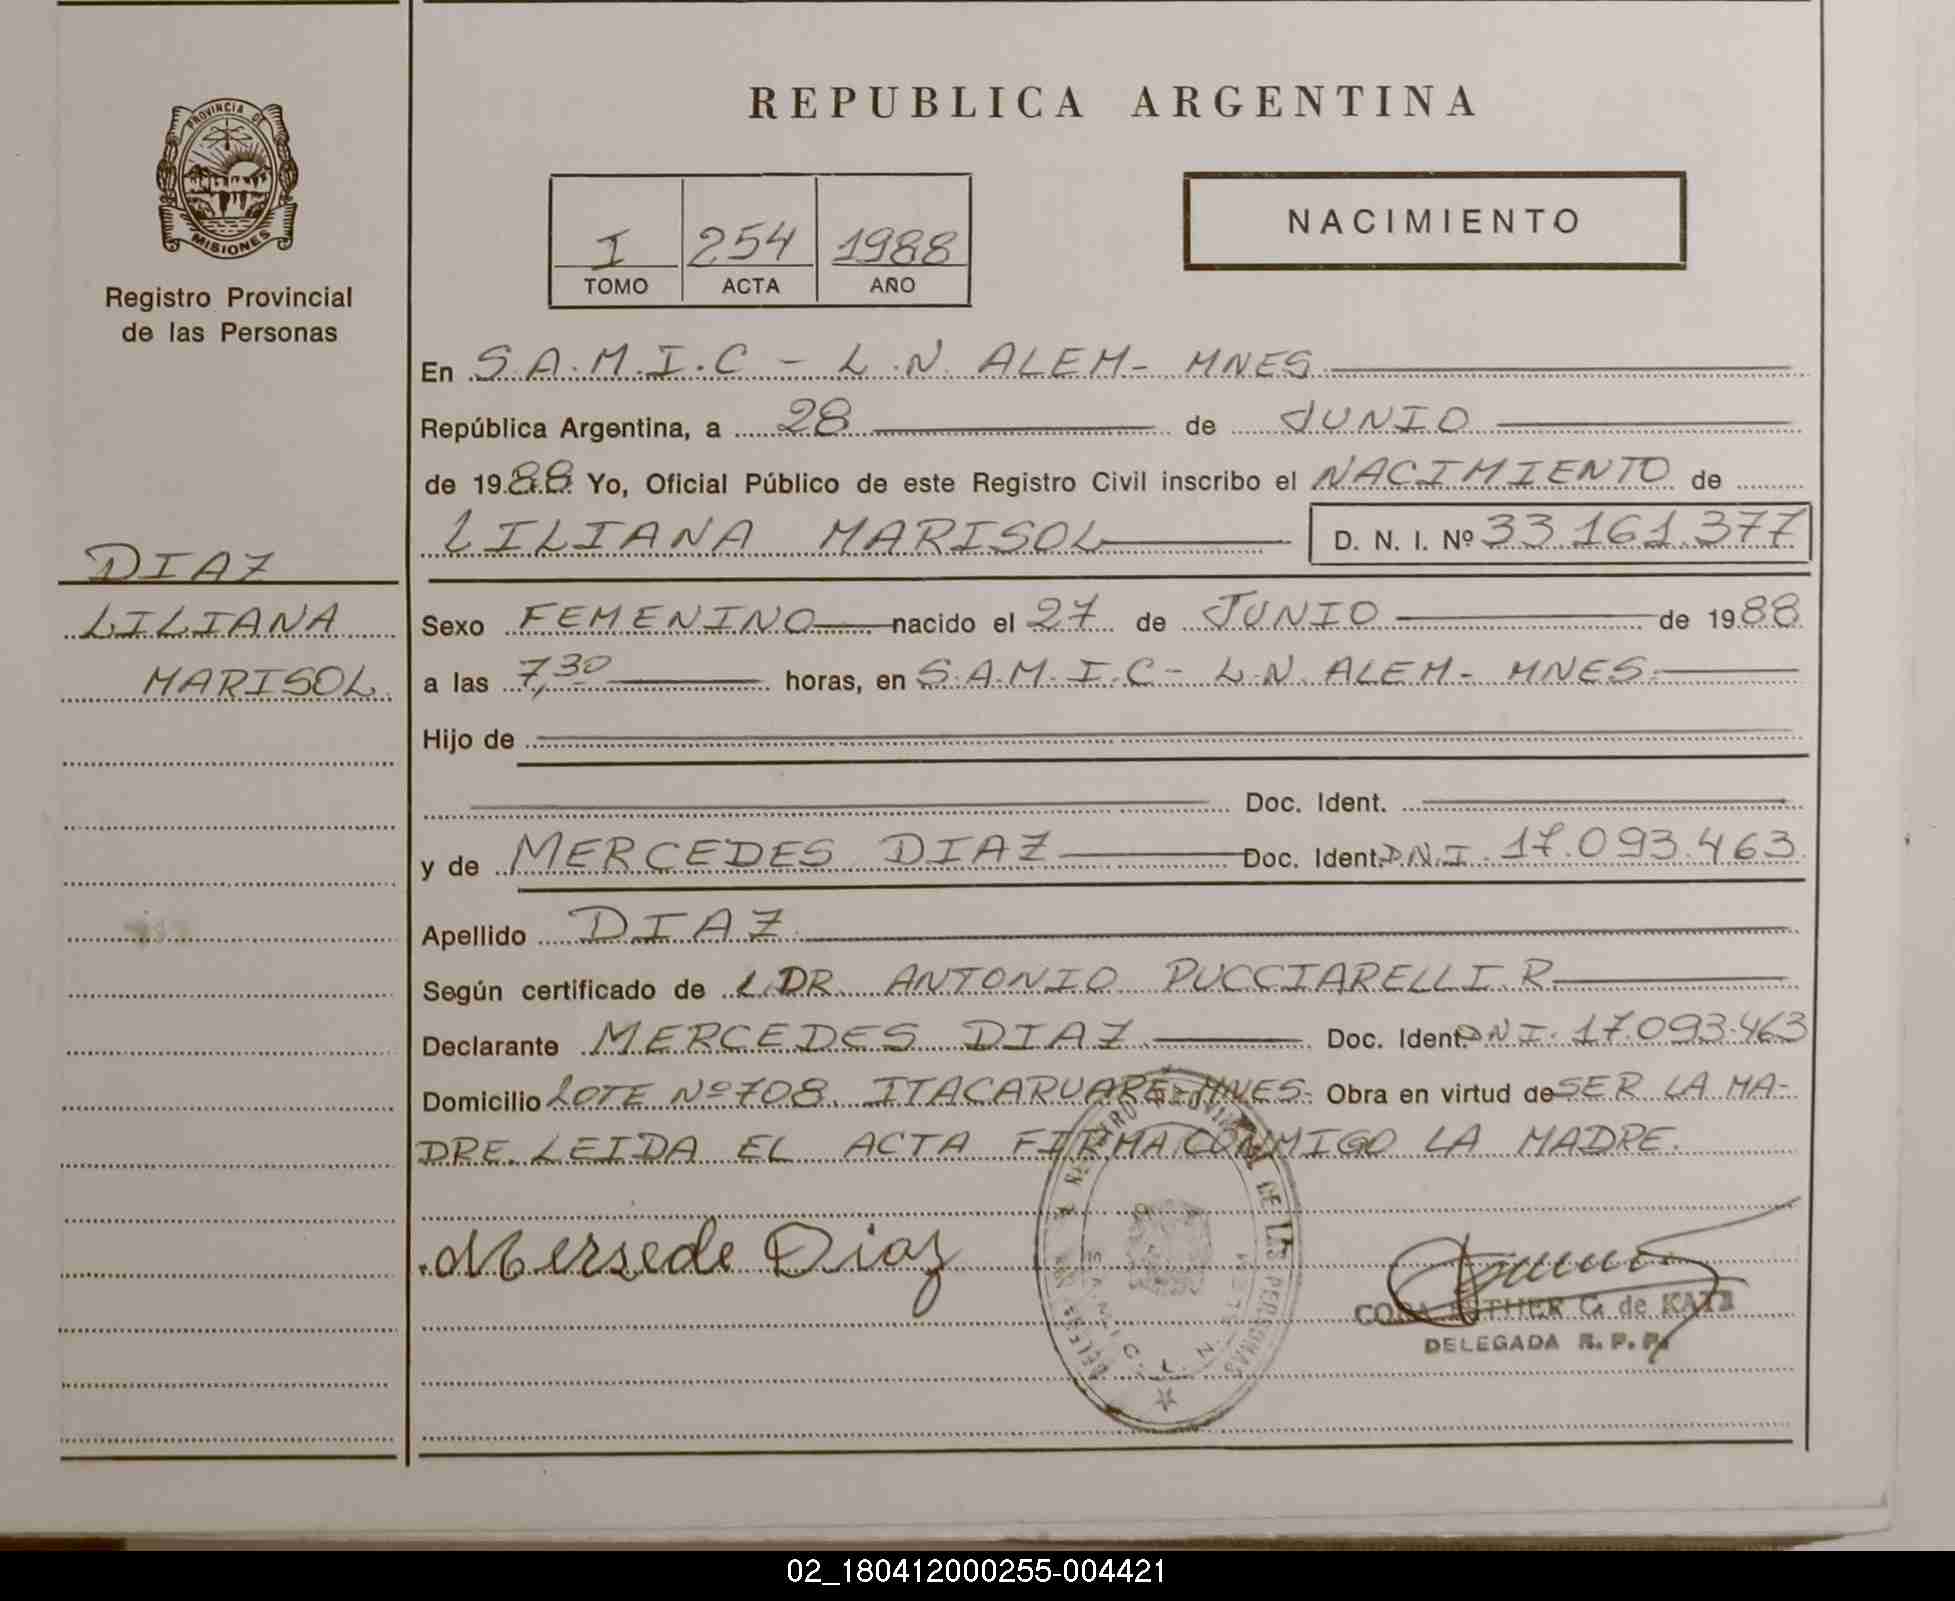 PROVINCIA DE
MISIONES
Registro Provincial
de las Personas
DIAZ
LILIANA
MARISOL
REPUBLICA ARGENTINA
I 254 1988
TOMO ACTA AÑO
NACIMIENTO
En S.A.M.I.C - L.N. ALEM- MNES
República Argentina, a 28 de JUNIO
de 1988 Yo, Oficial Público de este Registro Civil inscribo el NACIMIENTO de
LILIANA MARISOL D. N. I. Nº 33.161.377
Sexo FEMENINO nacido el 27 de JUNIO de 1988
a las 7,30 horas, en S.A.M.I.C - L.N. ALEM- MNES.
Hijo de
Doc. Ident.
y de MERCEDES DIAZ Doc. Ident. D.N.I. 17.093.463
Apellido DIAZ
Según certificado de DR. ANTONIO PUCCIARELLI.R
Declarante MERCEDES DIAZ Doc. Ident. DNI. 17.093.463
Domicilio LOTE Nº 708. ITACARUARE-MNES. Obra en virtud de SER LA MA-
DRE. LEIDA EL ACTA FIRMA CONMIGO LA MADRE.
Mersede Diaz
REGISTRO PROVINCIAL DE LAS PERSONAS
CORA ESTHER G. de KATZ
DELEGADA R. P. P.
02_180412000255-004421